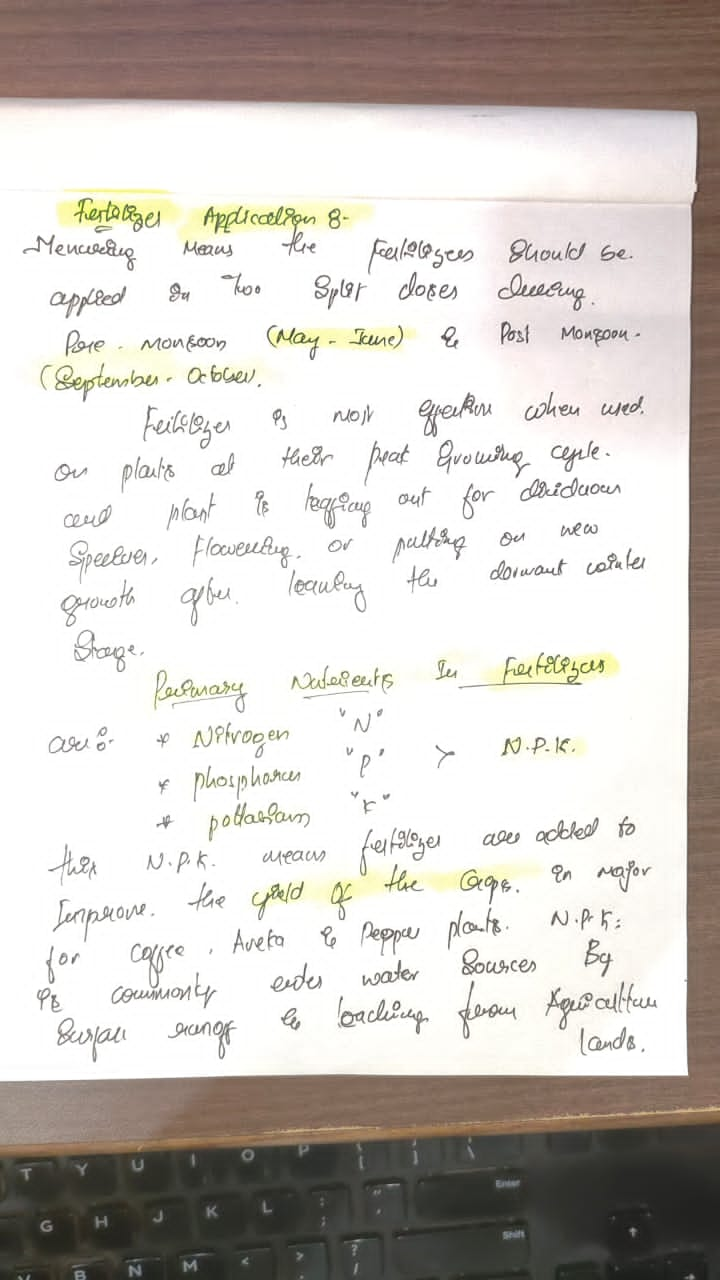 Fertilizer Application :-
Menuring Means the Fertilizers Should be.
applied In Two Split doses during.
Pre - Monsoon (May - June) & Post Monsoon -
(September - October.
Fertilizer is most effective when used.
on plants at their peak Growing cycle.
and plant is leaffing out for
Species, Flowering, or putting on new
growth after. leaving the dormant winter
Stage.
Primary Nutrients In Fertilizers
are :- * Nitrogen "N"
* phosphorus "P" > N.P.K.
* pottasium "K"
this N.P.K. means fertilizer are added to
Improve. the yield of the Crops. in Major
for Coffee, Areka & Pepper plants. N.P.K:
is commonly enter water Sources By
Surface runoff & leaching from Agriculture
lands.
T Y U I O P { [ } ] | \
Enter
G H J K L : ; " '
Shift
B N M < > ? /